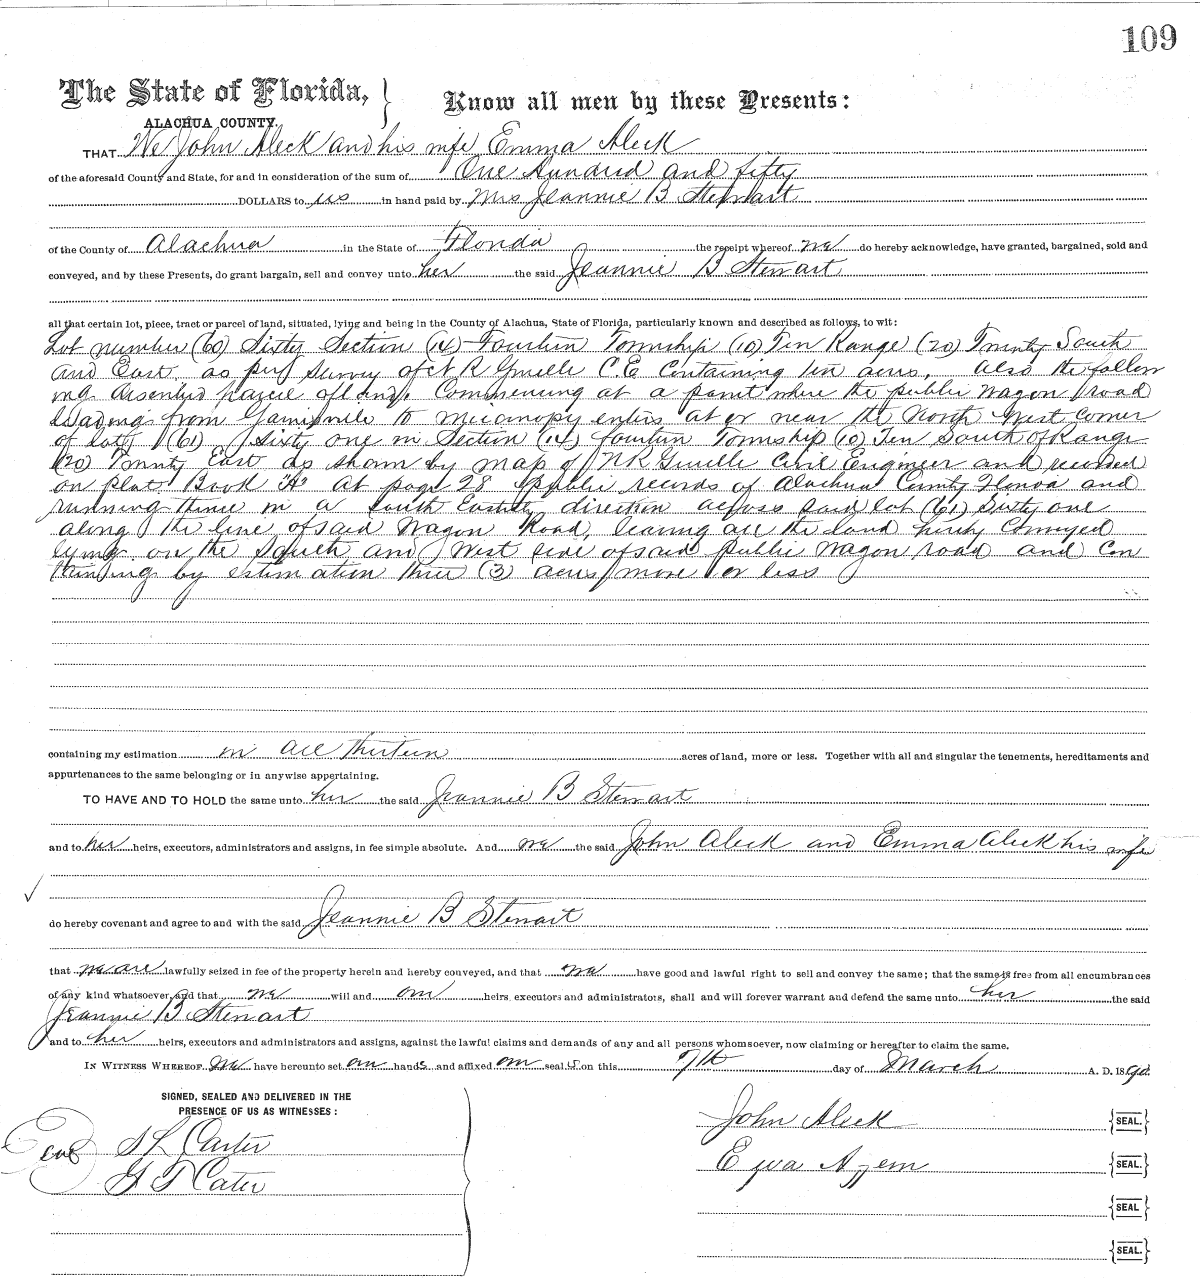 109
The State of Florida, } Know all men by these Presents:
ALACHUA COUNTY.
THAT We John Aleck and his wife Emma Aleck
of the aforesaid County and State, for and in consideration of the sum of One Hundred and fifty
DOLLARS to us in hand paid by Mrs Jeannie B Stewart
of the County of Alachua in the State of Florida the receipt whereof we do hereby acknowledge, have granted, bargained, sold and
conveyed, and by these Presents, do grant bargain, sell and convey unto her the said Jeannie B Stewart
all that certain lot, piece, tract or parcel of land, situated, lying and being in the County of Alachua, State of Florida, particularly known and described as follows, to wit:
Lot number (60) Sixty Section (14) Fourteen Township (10) Ten Range (20) Twenty South
and East, as per Survey of N R Gruelle C.E Containing ten acres, Also the follow
ing described parcel of land, Commencing at a point where the public wagon road
leading from Gainsville to Micanopy enters at or near the North West corner
of lot (61) Sixty one in Section (14) fourteen Township (10) Ten South of Range
(20) Twenty East as shown by map of N R Gruelle Civil Engineer and recorded
on Plat Book "A" at page 28 public records of Alachua County Florida and
running thence in a South Easterly direction across said lot (61) Sixty one
along the line of said Wagon Road, leaving all the land hereby conveyed
lying on the South and West side of said public wagon road and con
taining by estimation three (3) acres more or less
containing my estimation in all thirteen acres of land, more or less. Together with all and singular the tenements, hereditaments and
appurtenances to the same belonging or in anywise appertaining.
TO HAVE AND TO HOLD the same unto her the said Jeannie B Stewart
and to her heirs, executors, administrators and assigns, in fee simple absolute. And we the said John Aleck and Emma Aleck his wife
do hereby covenant and agree to and with the said Jeannie B Stewart
that we are lawfully seized in fee of the property herein and hereby conveyed, and that we have good and lawful right to sell and convey the same; that the same is free from all encumbrances
of any kind whatsoever, and that we will and our heirs, executors and administrators, shall and will forever warrant and defend the same unto her the said
Jeannie B Stewart
and to her heirs, executors and administrators and assigns, against the lawful claims and demands of any and all persons whomsoever, now claiming or hereafter to claim the same.
IN WITNESS WHEREOF we have hereunto set our hands and affixed our seals on this 7th day of March A. D. 1890.
SIGNED, SEALED AND DELIVERED IN THE
PRESENCE OF US AS WITNESSES:
John Aleck {SEAL.}
S L Carter
{SEAL.}
G T Cater
{SEAL}
{SEAL.}